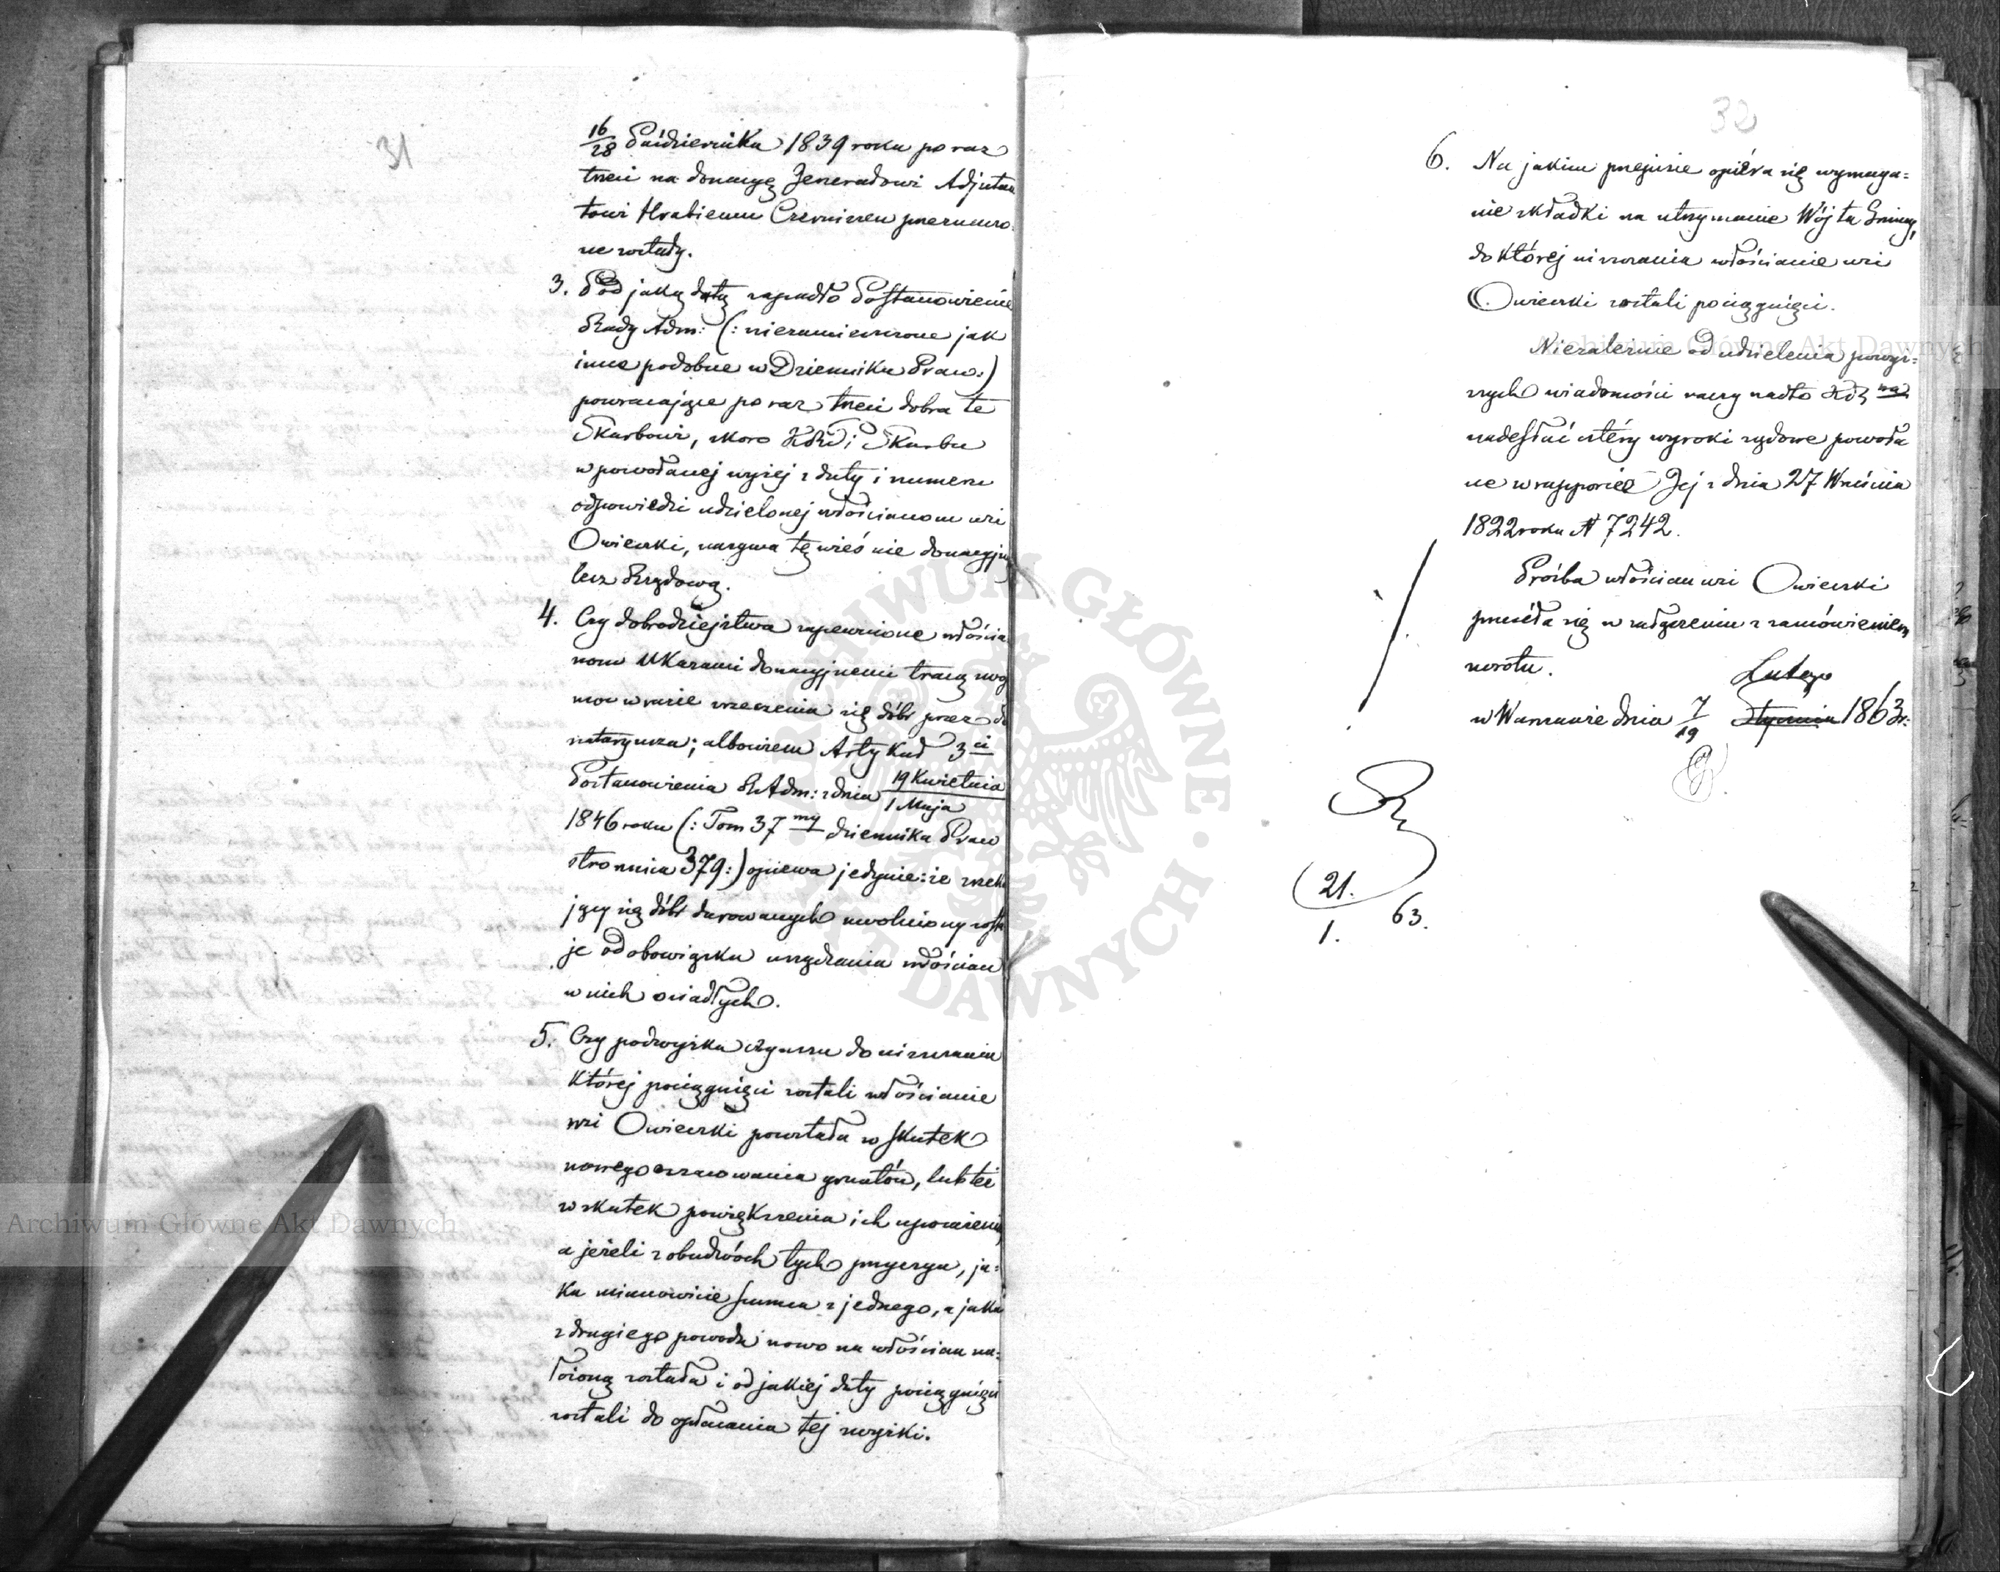 31
16/28 Października 1839 roku po raz
trzeci na donacyę Jenerałowi Adjutan
towi Hrabiemu Czerniszew przeznaczo
ne zostały.
3. Pod jaką datą zapadło Postanowienie
Rady Adm: (: niezamieszczone jak
inne podobne w Dzienniku Praw:)
powracające po raz trzeci dobra te
Skarbowi, skoro K. i Skarbu
w powołanej wyżej z daty i numeru
odpowiedzi udzielonej włościanom wsi
Owieczki, nazywa tę wieś nie donacyjną
lecz Rządową.
4. Czy dobrodziejstwa zapewnione włościa
nom Ukazami donacyjnemi tracą swą
moc w razie zrzeczenia się dóbr przez do
nataryusza; albowiem Artykuł 3ci
Postanowienia R. Adm: z dnia 19 Kwietnia/1 Maja
1846 roku (: Tom 37my dziennika Praw
stronnica 379:) opiewa jedynie: że zrzeka
jący się dóbr darowanych uwolniony zosta
je od obowiązku urządzania włościan
w nich osiadłych.
5. Czy podwyżka czynszu do uiszczania
której pociągnięci zostali włościanie
wsi Owieczki powstała w skutek
nowego oszacowania gruntów, lub też
w skutek powiększenia ich uposażenia,
a jeżeli z obudwóch tych przyczyn, ja=
ka mianowicie summa z jednego, a jaka
z drugiego powodu nowo na włościan na=
łożoną została i od jakiej daty pociągnięci
zostali do opłacania tej zwyżki.
32
6. Na jakim przepisie opiéra się wymaga=
nie składki na utrzymanie Wójta Gminy,
do której uiszczania włościanie wsi
Owieczki zostali pociągnięci.
Niezależnie od udzielenia powyż=
szych wiadomości raczy nadto
nadesłać cztéry wyroki sądowe powoła
ne w rapporcie Jej z dnia 27 Września
1822 roku N 7242.
Prośba włościan wsi Owieczki
przeséła się w załączeniu z zamówieniem
zwrotu.
Lutego
w Warszawie dnia 7/19 Stycznia 1863 r:
21.
1. 63.
Archiwum Główne Akt Dawnych
Archiwum Główne Akt Dawnych
ARCHIWUM GŁÓWNE AKT DAWNYCH